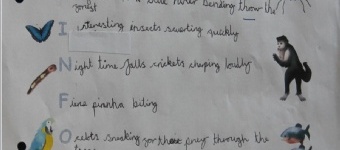 a blue river bending throw the
forest
Interesting insects scurting quickly
Night time falls crickets chirping loudly
Fiere piranha biting
Ocelots sneaking for their prey through the